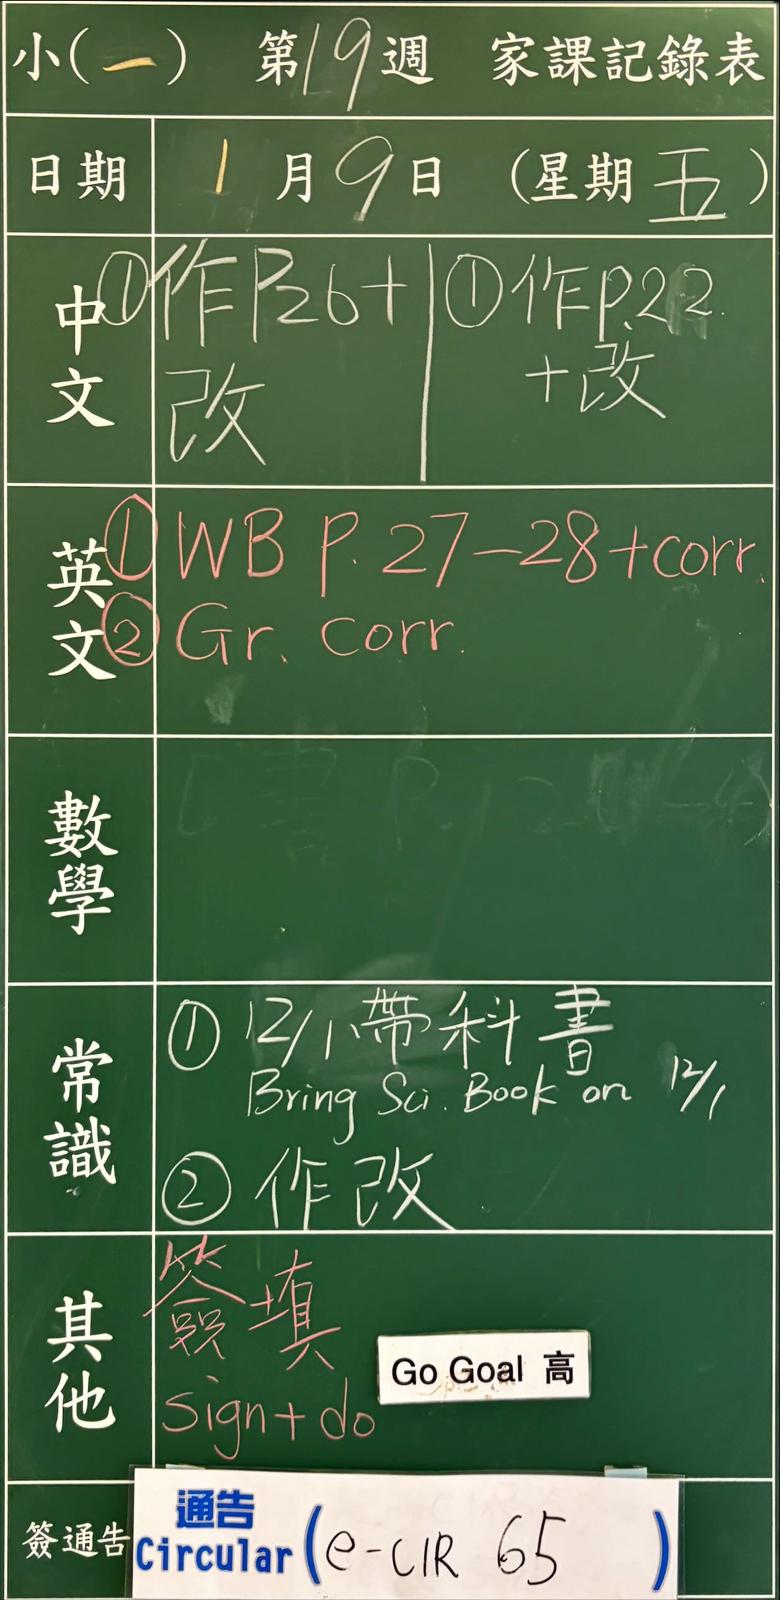 小(一) 第19週 家課記錄表
日期 1月9日 (星期五)
中文
①作P26+
改
①作p.22
+改
英文
①WB P. 27-28+corr.
②Gr. corr.
數學
常識
① 12/1帶科書
Bring Sci. Book on 12/1
② 作改
其他
簽填
sign+do
Go Goal 高
簽通告
通告
Circular (e-CIR 65)